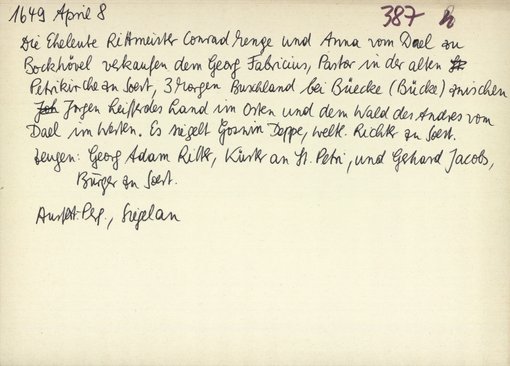 1649 April 8 387
Die Eheleute Rittmeister Conrad Menge und Anna vom Dael zu
Bockhövel verkaufen dem Georg Fabricius, Pastor in der alten
Petrikirche zu Soest, 3 Morgen Buschland bei Büecke (Bücke) zwischen
Jürgen Land im Osten und dem Wald des Andres vom
Dael im Westen. Es siegelt Goswin Deppe, weltl. Richter zu Soest.
Zeugen: Georg Adam Ritter, Küster an St. Petri, und Gerhard Jacobs,
Bürger zu Soest.
Ausfert. Perg., Siegel an